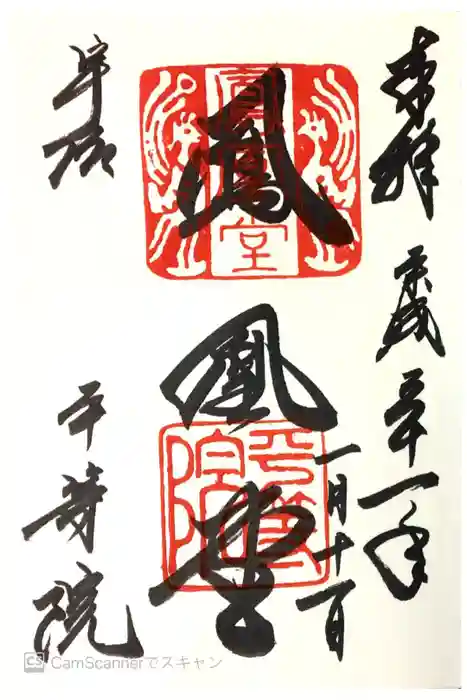 奉拝 平成三十一年
一月十一日
鳳凰堂
宇治 平等院
鳳凰堂
平等院
CS CamScannerでスキャン